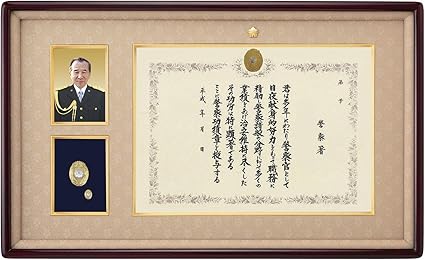 警察署
君は多年にわたり警察官として
日夜献身的努力をもって職務に
精励し警察諸般の分野において多くの
業績をあげ治安維持に尽くした
その功労は特に顕著である
ここに警察功績章を授与する
平成 年 月 日